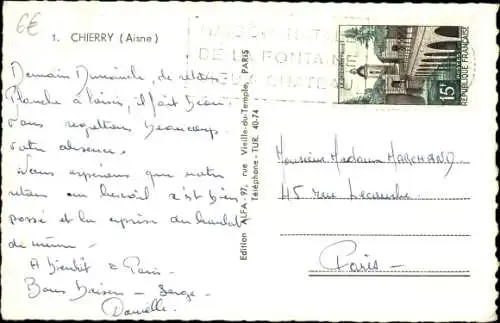 6€
1. CHIERRY (Aisne)
DE LA FONTAINE
CHATEAU
15F
POSTES
REPUBLIQUE FRANÇAISE
Demain Dimanche, de retour
Planche à laisir, il fait bien
vous regrettons beaucoup
votre absence.
Nous espérons que votre
retour au travail s'est bien
passé et la reprise du boulot
de même -
A bientôt à Paris -
Bons baisers - Serge -
Danielle.
Edition ALFA - 97, rue Vieille-du-Temple, PARIS
Téléphone - TUR. 40-74
Monsieur Madame MARCHAND
45 rue Lecourbe
Paris -